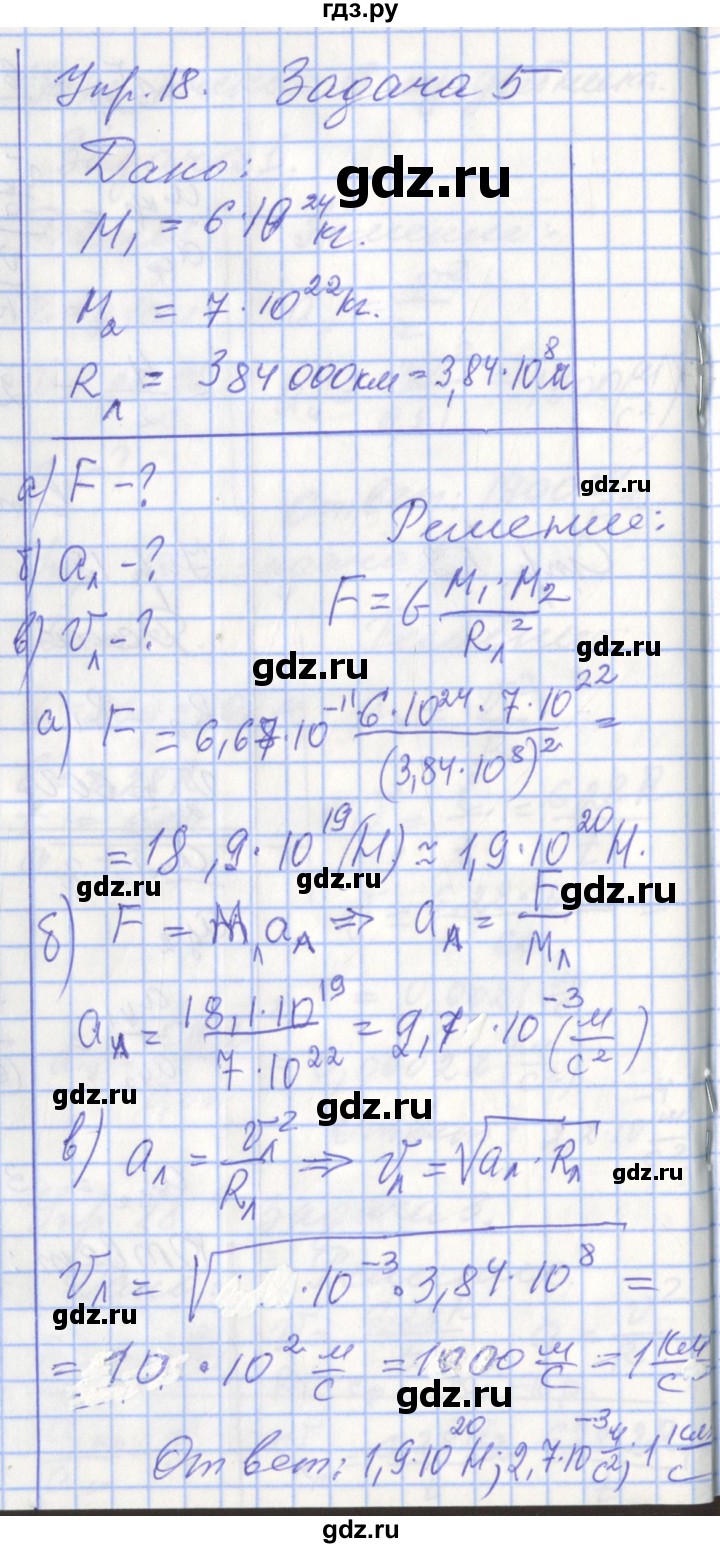 гдз.ру
Упр. 18. Задача 5
Дано:
гдз.ру
M₁ = 6·10²⁴ кг.
M₂ = 7·10²² кг.
Rл = 384 000 км = 3,84·10⁸ м
а) F - ?
gdz.ru
Решение:
б) aл - ?
F = G M₁·M₂ / Rл²
в) υл - ?
gdz.ru
gdz.ru
а) F = 6,67·10⁻¹¹ 6·10²⁴·7·10²² / (3,84·10⁸)² =
gdz.ru
= 18,9·10¹⁹ (Н) ≈ 1,9·10²⁰ Н.
gdz.ru
gdz.ru
gdz.ru
б) F = Mл aл ⇒ aл = F / Mл
aл = 18,1·10¹⁹ / 7·10²² = 2,7·10⁻³ (м/с²)
gdz.ru
gdz.ru
в) aл = υл² / Rл ⇒ υл = √(aл·Rл)
gdz.ru
υл = √(·10⁻³·3,84·10⁸) =
gdz.ru
= 10·10² м/с = 1000 м/с = 1 км/с
gdz.ru
Ответ: 1,9·10²⁰ Н; 2,7·10⁻³ м/с²; 1 км/с
gdz.ru
gdz.ru